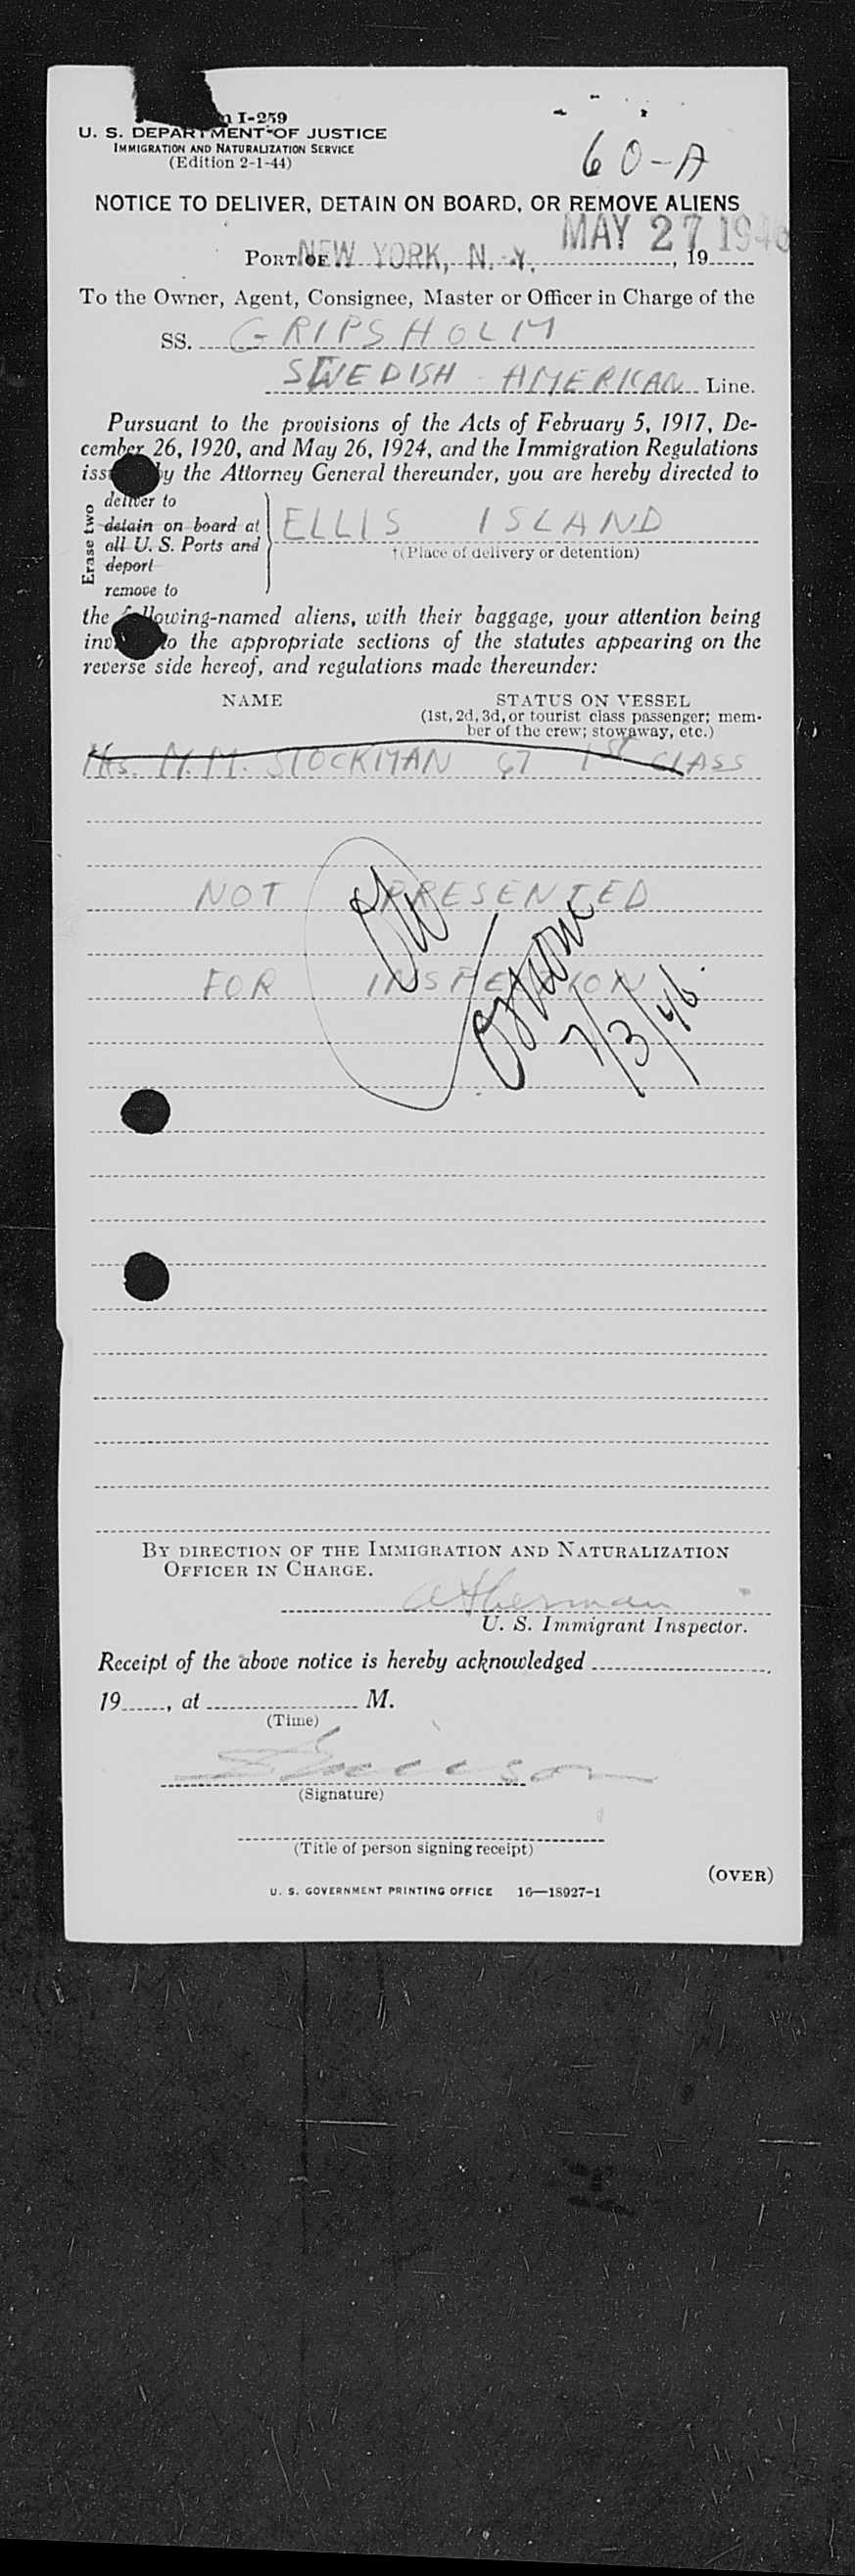 I-259
U. S. DEPARTMENT OF JUSTICE
IMMIGRATION AND NATURALIZATION SERVICE
(Edition 2-1-44)
60-A
NOTICE TO DELIVER, DETAIN ON BOARD, OR REMOVE ALIENS
MAY 27 1946
PORT OF NEW YORK, N. Y. , 19
To the Owner, Agent, Consignee, Master or Officer in Charge of the
SS. GRIPSHOLM
SWEDISH - AMERICAN Line.
Pursuant to the provisions of the Acts of February 5, 1917, De-
cember 26, 1920, and May 26, 1924, and the Immigration Regulations
iss by the Attorney General thereunder, you are hereby directed to
Erase two
deliver to
detain on board at
all U. S. Ports and
deport
remove to
ELLIS ISLAND
†(Place of delivery or detention)
the following-named aliens, with their baggage, your attention being
inv to the appropriate sections of the statutes appearing on the
reverse side hereof, and regulations made thereunder:
NAME STATUS ON VESSEL
(1st, 2d, 3d, or tourist class passenger; mem-
ber of the crew; stowaway, etc.)
M.M. STOCKMAN 67 1st CLASS
NOT PRESENTED
FOR INSPECTION
7/3/46
BY DIRECTION OF THE IMMIGRATION AND NATURALIZATION
OFFICER IN CHARGE.
U. S. Immigrant Inspector.
Receipt of the above notice is hereby acknowledged
19 , at M.
(Time)
(Signature)
(Title of person signing receipt)
(OVER)
U. S. GOVERNMENT PRINTING OFFICE 16—18927-1